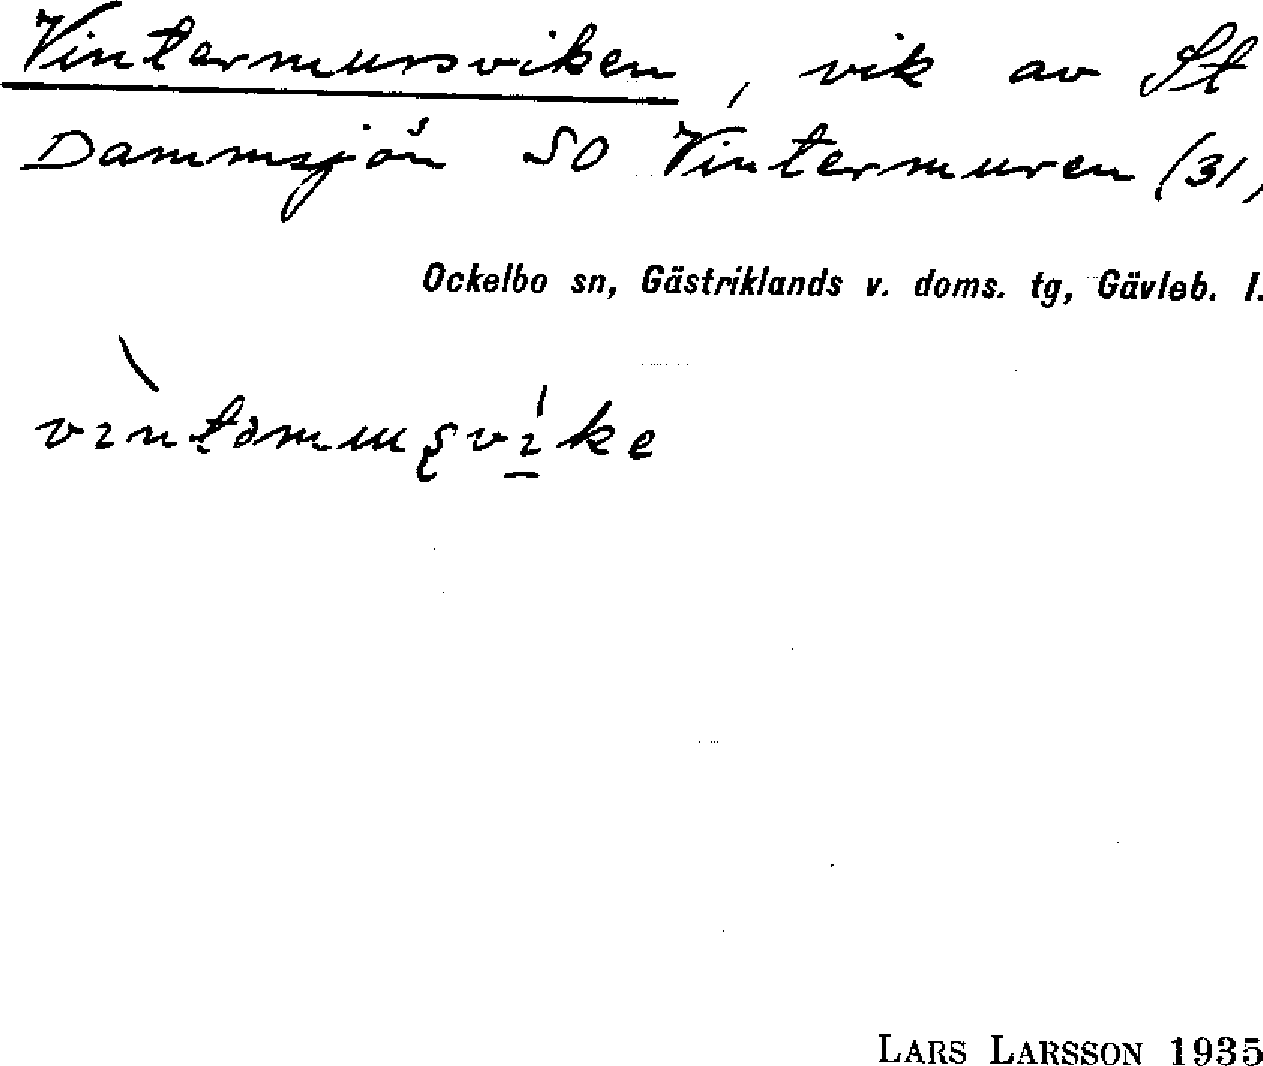 Vintermursviken, vik av St
Dammsjön SO Vintermuren (31,
Ockelbo sn, Gästriklands v. doms. tg, Gävleb. l.
LARS LARSSON 1935